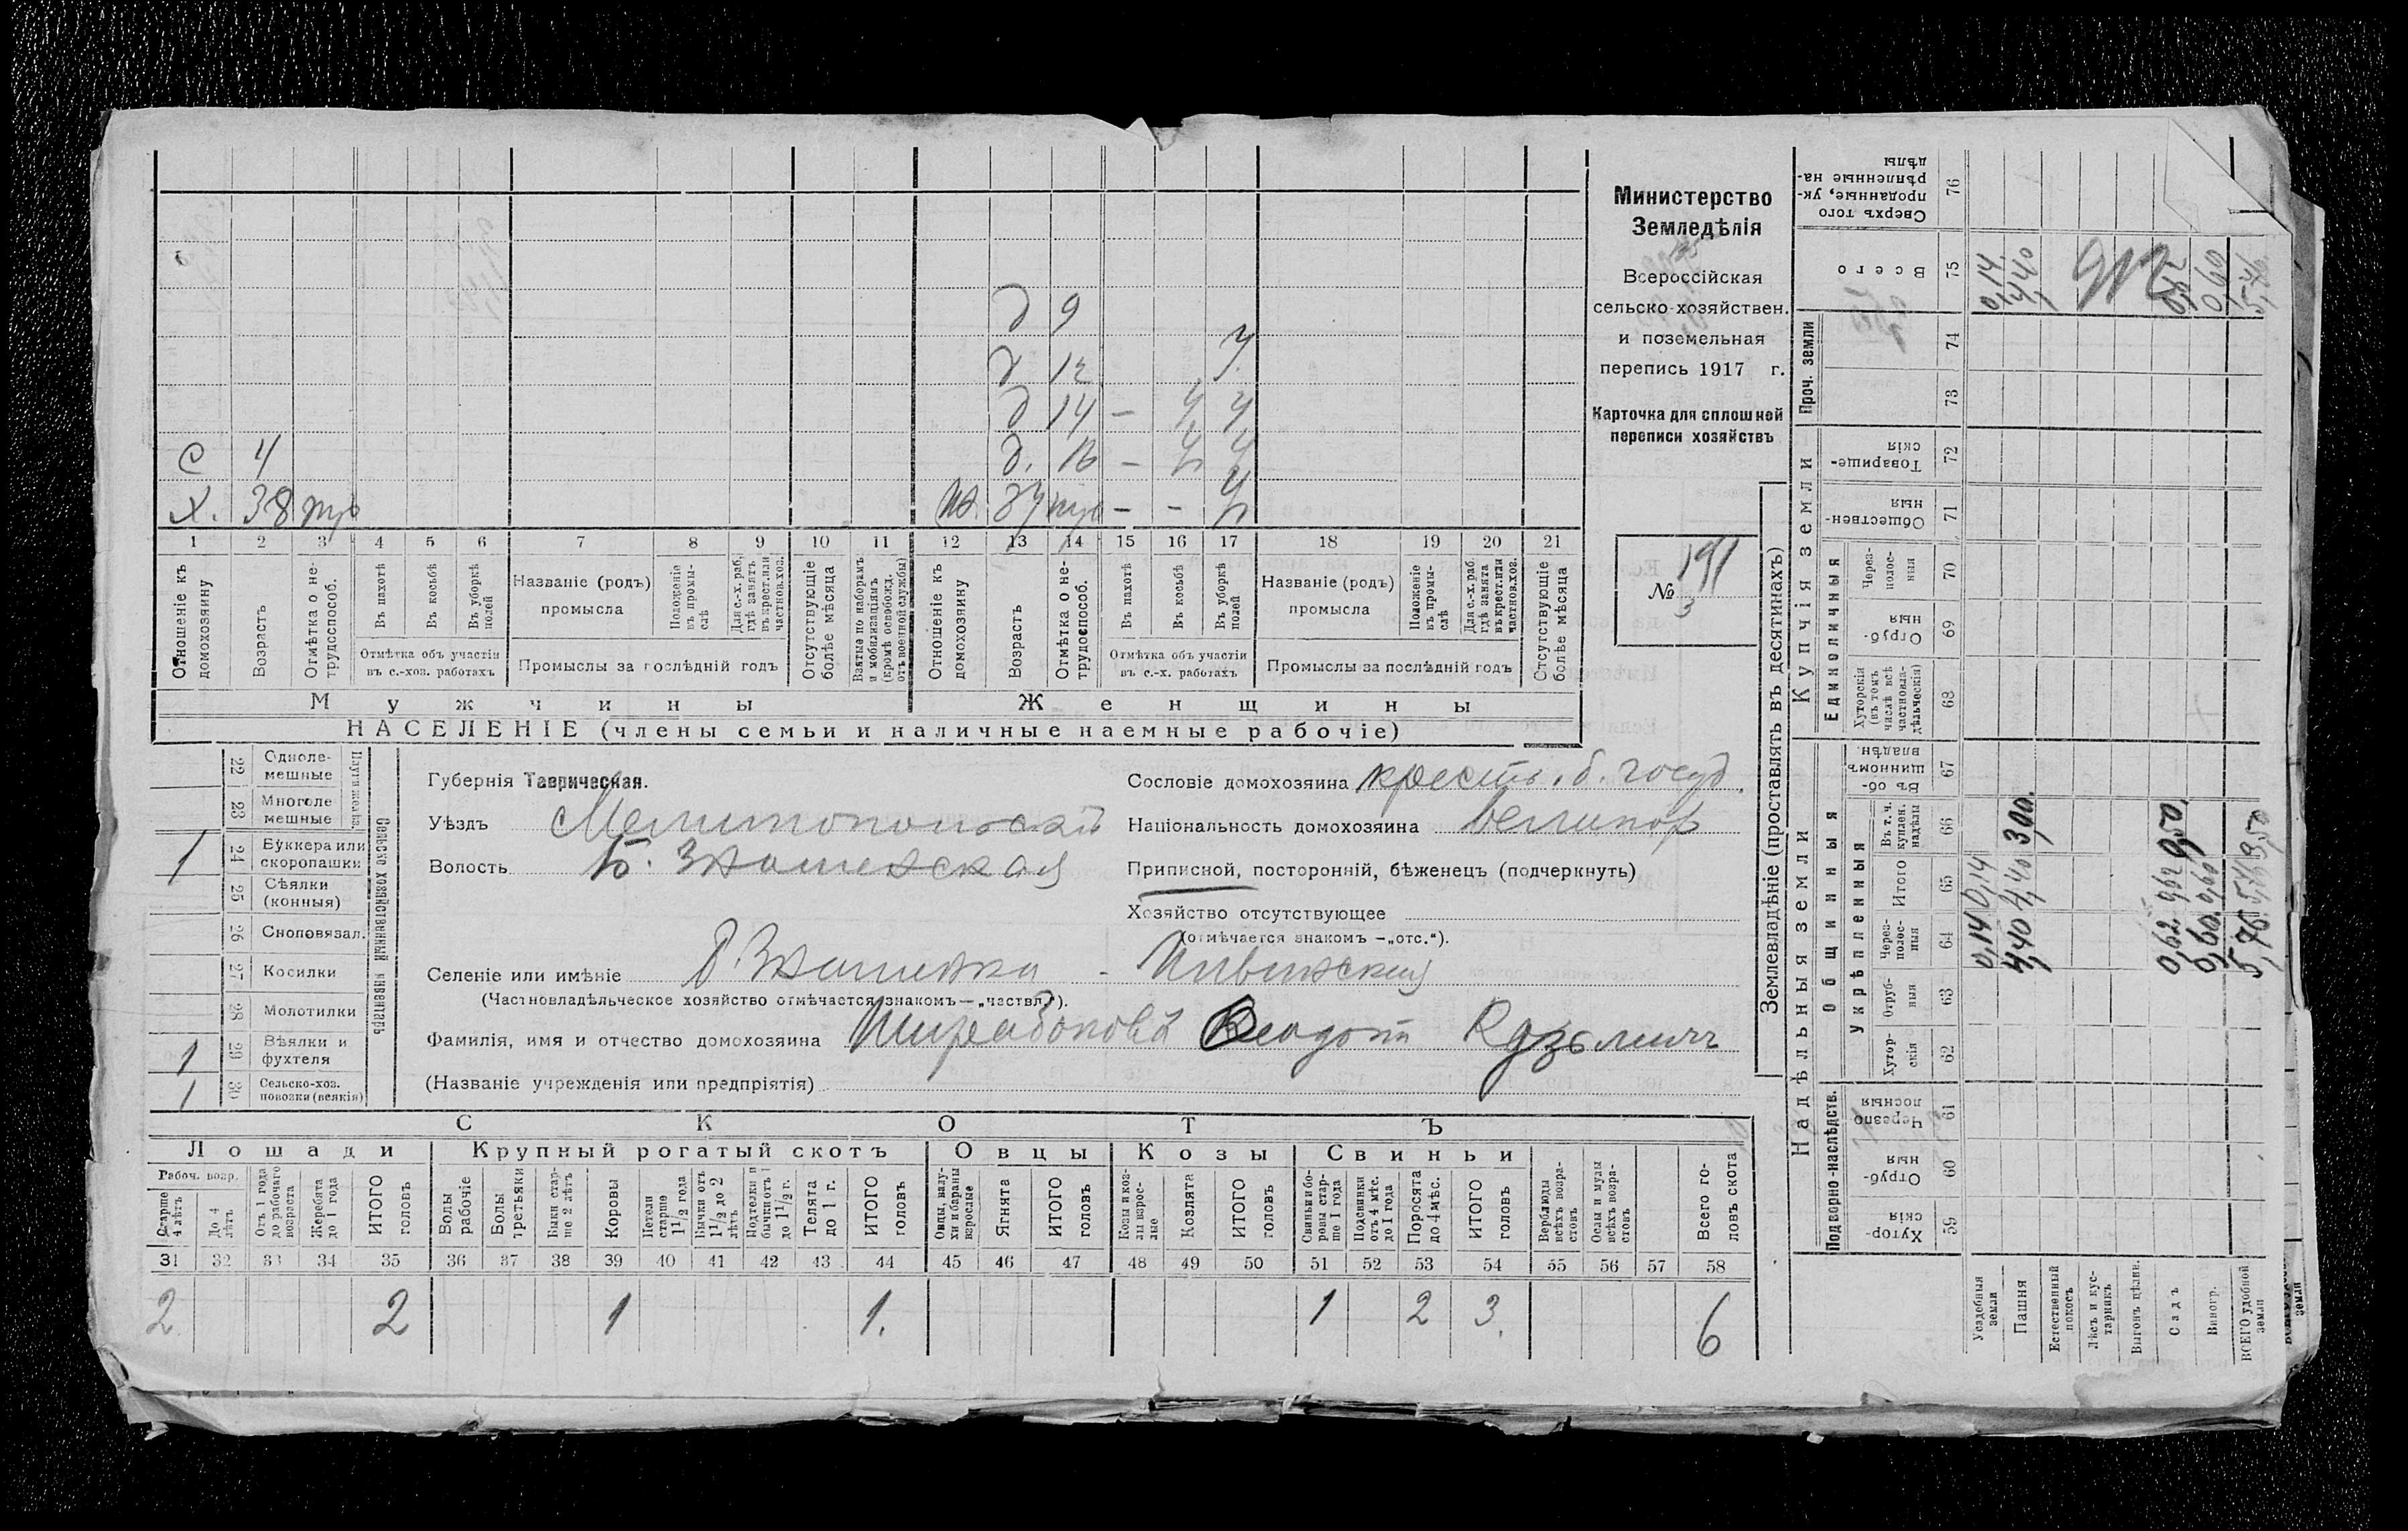 Министерство
Земледѣлія
Всероссійская
сельско-хозяйствен.
и поземельная
перепись 1917 г.
Карточка для сплошной
переписи хозяйствъ
№ 191
3
д 9
д 12 У
д 14 – У У
С 4 д. 16 – У У
Х. 38
1 2 3 4 5 6 7 8 9 10 11 12 13 14 15 16 17 18 19 20 21
Отношеніе къ домохозяину
Возрастъ
Отмѣтка о не-трудоспособ.
Въ пахотѣ
Въ косьбѣ
Въ уборкѣ полей
Отмѣтка объ участіи въ с.-хоз. работахъ
Названіе (родъ) промысла
Положеніе въ промы-слѣ
Для с.-х. раб. гдѣ занятъ въ крест. или частнов. хоз.
Промыслы за послѣдній годъ
Отсутствующіе болѣе мѣсяца
Взятые по наборамъ и мобилизаціямъ (кромѣ освобожд. отъ военной службы)
Отношеніе къ домохозяину
Возрастъ
Отмѣтка о не-трудоспособ.
Въ пахотѣ
Въ косьбѣ
Въ уборкѣ полей
Отмѣтка объ участіи въ с.-х. работахъ
Названіе (родъ) промысла
Положеніе въ промы-слѣ
Для с.-х. раб. гдѣ занята въ крест. или частнов. хоз.
Промыслы за послѣдній годъ
Отсутствующіе болѣе мѣсяца
Мужчины Женщины
НАСЕЛЕНІЕ (члены семьи и наличные наемные рабочіе)
22 Одноле-мешные
23 Многоле мешные
1 24 Буккера или скоропашки
25 Сѣялки (конныя)
26 Сноповязал.
27 Косилки
28 Молотилки
1 29 Вѣялки и фухтеля
1 30 Сельско-хоз. повозки (всякія)
Сельско хозяйственный инвентарь
Губернія Таврическая.
Уѣздъ Мелитопольскій
Волость Б. Знаменская
Селеніе или имѣніе Б. Знаменка
(Частновладѣльческое хозяйство отмѣчается знакомъ — „частвл.").
Фамилія, имя и отчество домохозяина
(Названіе учрежденія или предпріятія)
Сословіе домохозяина крест. б. госуд.
Національность домохозяина великор
Приписной, посторонній, бѣженецъ (подчеркнуть)
Хозяйство отсутствующее
(отмѣчается знакомъ — „отс.").
СКОТЪ
Лошади Крупный рогатый скотъ Овцы Козы Свиньи
Рабоч. возр.
Старше 4 лѣтъ
До 4 лѣтъ
Отъ 1 года до рабочаго возраста
Жеребята до 1 года
ИТОГО головъ
Волы рабочіе
Волы третьяки
Быки стар-ше 2 лѣтъ
Коровы
Нетели старше 1 1/2 года
Бычки отъ 1 1/2 до 2 лѣтъ
Подтелки и бычки отъ 1 до 1 1/2 г.
Телята до 1 г.
ИТОГО головъ
Овцы, валу-хи и бараны взрослые
Ягнята
ИТОГО головъ
Козы и коз-лы взрос-лые
Козлята
ИТОГО головъ
Свиньи и бо-ровы стар-ше 1 года
Подсвинки отъ 4 мѣс. до 1 года
Поросята до 4 мѣс.
ИТОГО головъ
Верблюды всѣхъ возра-стовъ
Ослы и мулы всѣхъ возра-стовъ
Всего го-ловъ скота
31 32 33 34 35 36 37 38 39 40 41 42 43 44 45 46 47 48 49 50 51 52 53 54 55 56 57 58
2 2 1 1. 1 2 3. 6
Землевладѣніе (проставлять въ десятинахъ)
Надѣльныя земли
Купчія земли
Проч. земли
Подворно-наслѣдств.
Общинныя
Укрѣпленныя
Единоличныя
Хутор-скія 59
Отруб-ныя 60
Черезпо лосныя 61
Хутор-скія 62
Отруб-ныя 63
Через-полос-ныя 64
Итого 65
Въ т. ч. куплен. надѣлы 66
Въ об-щинномъ владѣн. 67
Хуторскія (въ томъ числѣ всѣ частновла-дѣльческія) 68
Отруб-ныя 69
Через-полос-ныя 70
Обществен-ныя 71
Товарище-скія 72
73
74
Всего 75
Сверхъ того проданные, ук-рѣпленные на-дѣлы 76
Усадебныя земли 0,14 0,14 0,14
Пашня 4,40 4,40 3,00. 4,40
Естественный покосъ
Лѣсъ и кус-тарникъ
Выгонъ цѣлин.
Садъ 0,62 0,62
Виногр. 0,60 0,60 0,60
ВСЕГО удобной земли 5,76